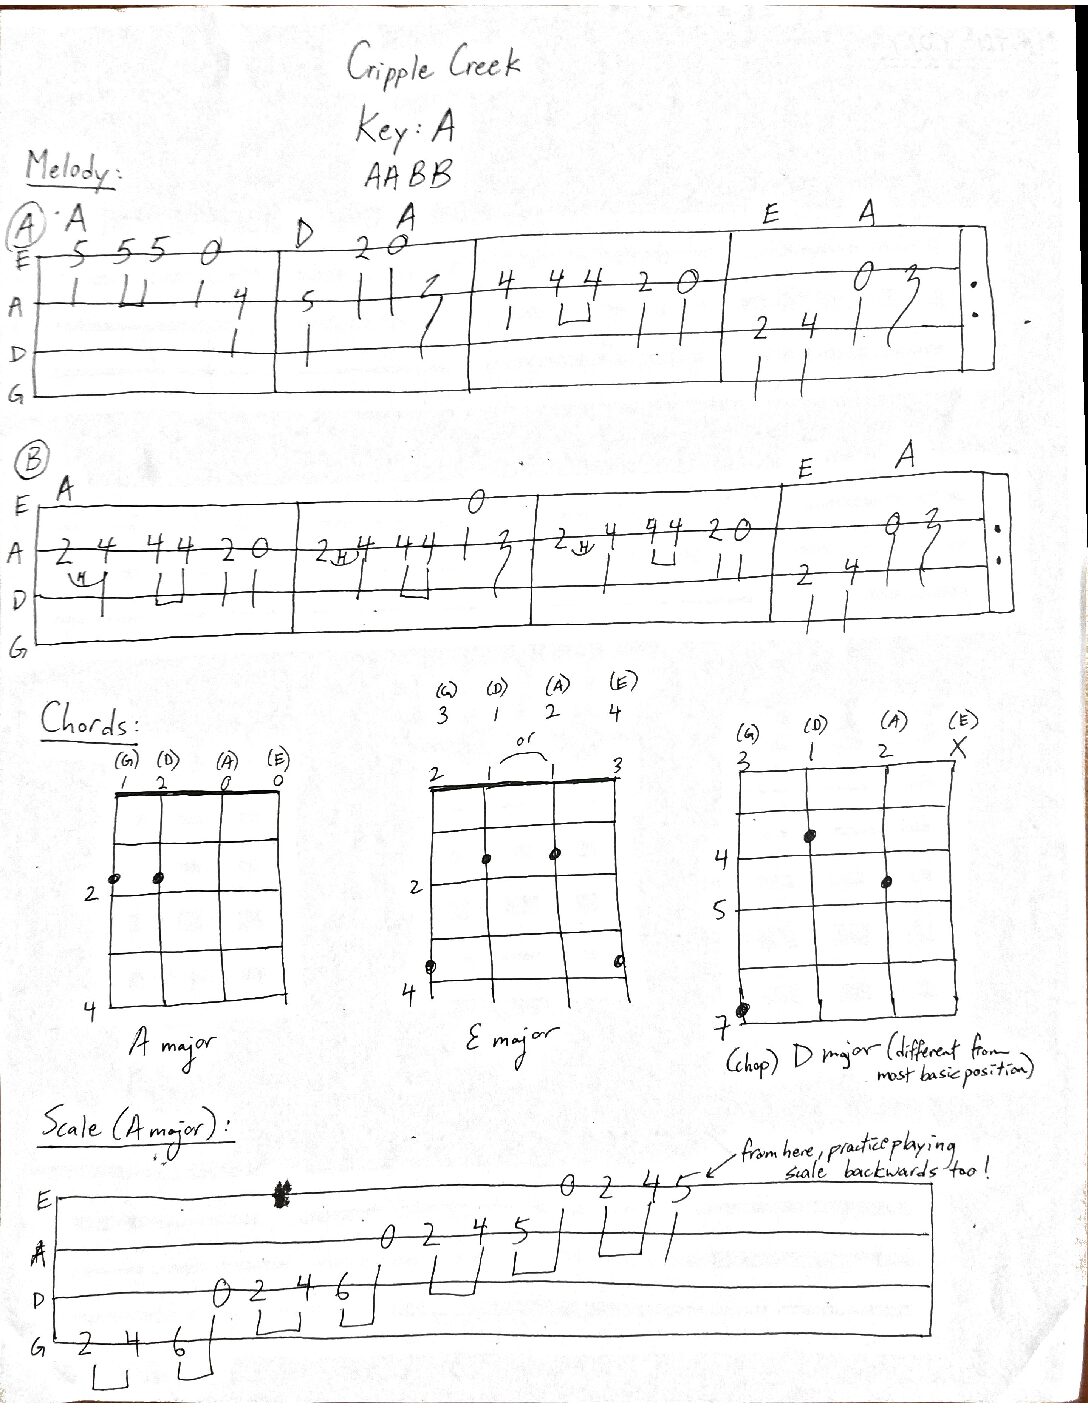 Cripple Creek
Key: A
AABB
Melody:
A A D A E A
E 5 5 5 0 2 0
A 4 5 4 4 4 2 0 0
D 2 4
G
B
A E A
E 0
A 2 H 4 4 4 2 0 2 H 4 4 4 2 H 4 4 4 2 0 0
D 2 4
G
Chords:
(G) (D) (A) (E)
1 2 0 0
2
4
A major
(G) (D) (A) (E)
3 1 2 4
or
2 1 1 3
2
4
E major
(G) (D) (A) (E)
3 1 2 X
4
5
7
(chop) D major (different from
most basic position)
Scale (A major):
from here, practice playing
scale backwards too!
E 0 2 4 5
A 0 2 4 5
D 0 2 4 6
G 2 4 6